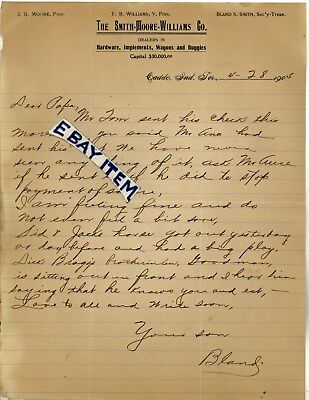 J. B. MOORE, PRES. T. B. WILLIAMS, V. PRES. BLAND S. SMITH, SEC'Y-TREAS.
THE SMITH-MOORE-WILLIAMS CO.
DEALERS IN
Hardware, Implements, Wagons and Buggies
Capital $30,000.00
Caddo, Ind. Ter. 4-28 1905
Dear Papa,
Mr Tom sent his check this
you said Mr had
sent his We have never
seen anything of it, ask Mr
if he sent it if he did to stop
payment of same,
I am feeling fine and do
not even feel a bit sore,
Sid & Jacks horse got out yesterday
or day before and had a big play.
Dick Goodman,
is sitting out in front and I hear him
saying that he knows you and est, -
Love to all and write soon,
Your son
Bland.
EBAY ITEM